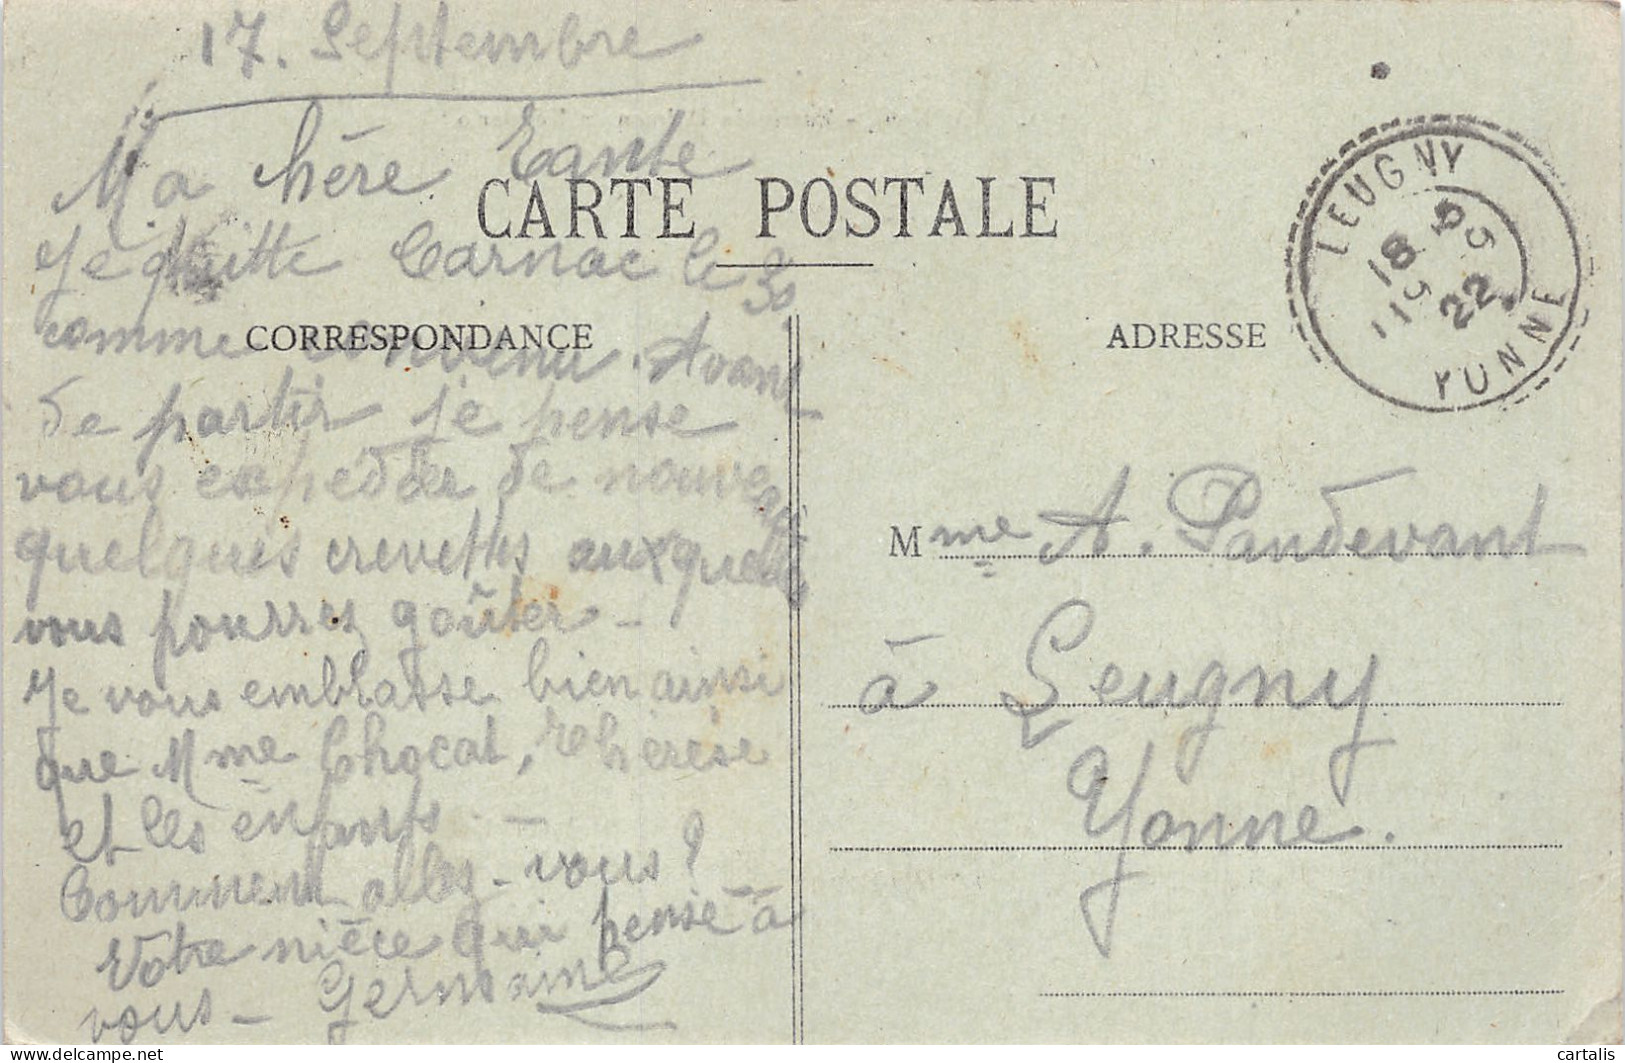 17. Septembre
Ma chère Tante
CARTE POSTALE
Je quitte Carnac le 30,
CORRESPONDANCE
comme convenu. Avant
de partir je pense
vous expédier de nouveau
quelques crevettes auxquelles
vous pourrez goûter –
Je vous embrasse bien ainsi
que Mme Chocat, Thérèse
et les enfants. –
Comment allez-vous ?
Votre nièce qui pense à
vous – Germaine
ADRESSE
LEUGNY
18 9 22
YONNE
Mme A. Pandevant
à Leugny
Yonne.
cartalis